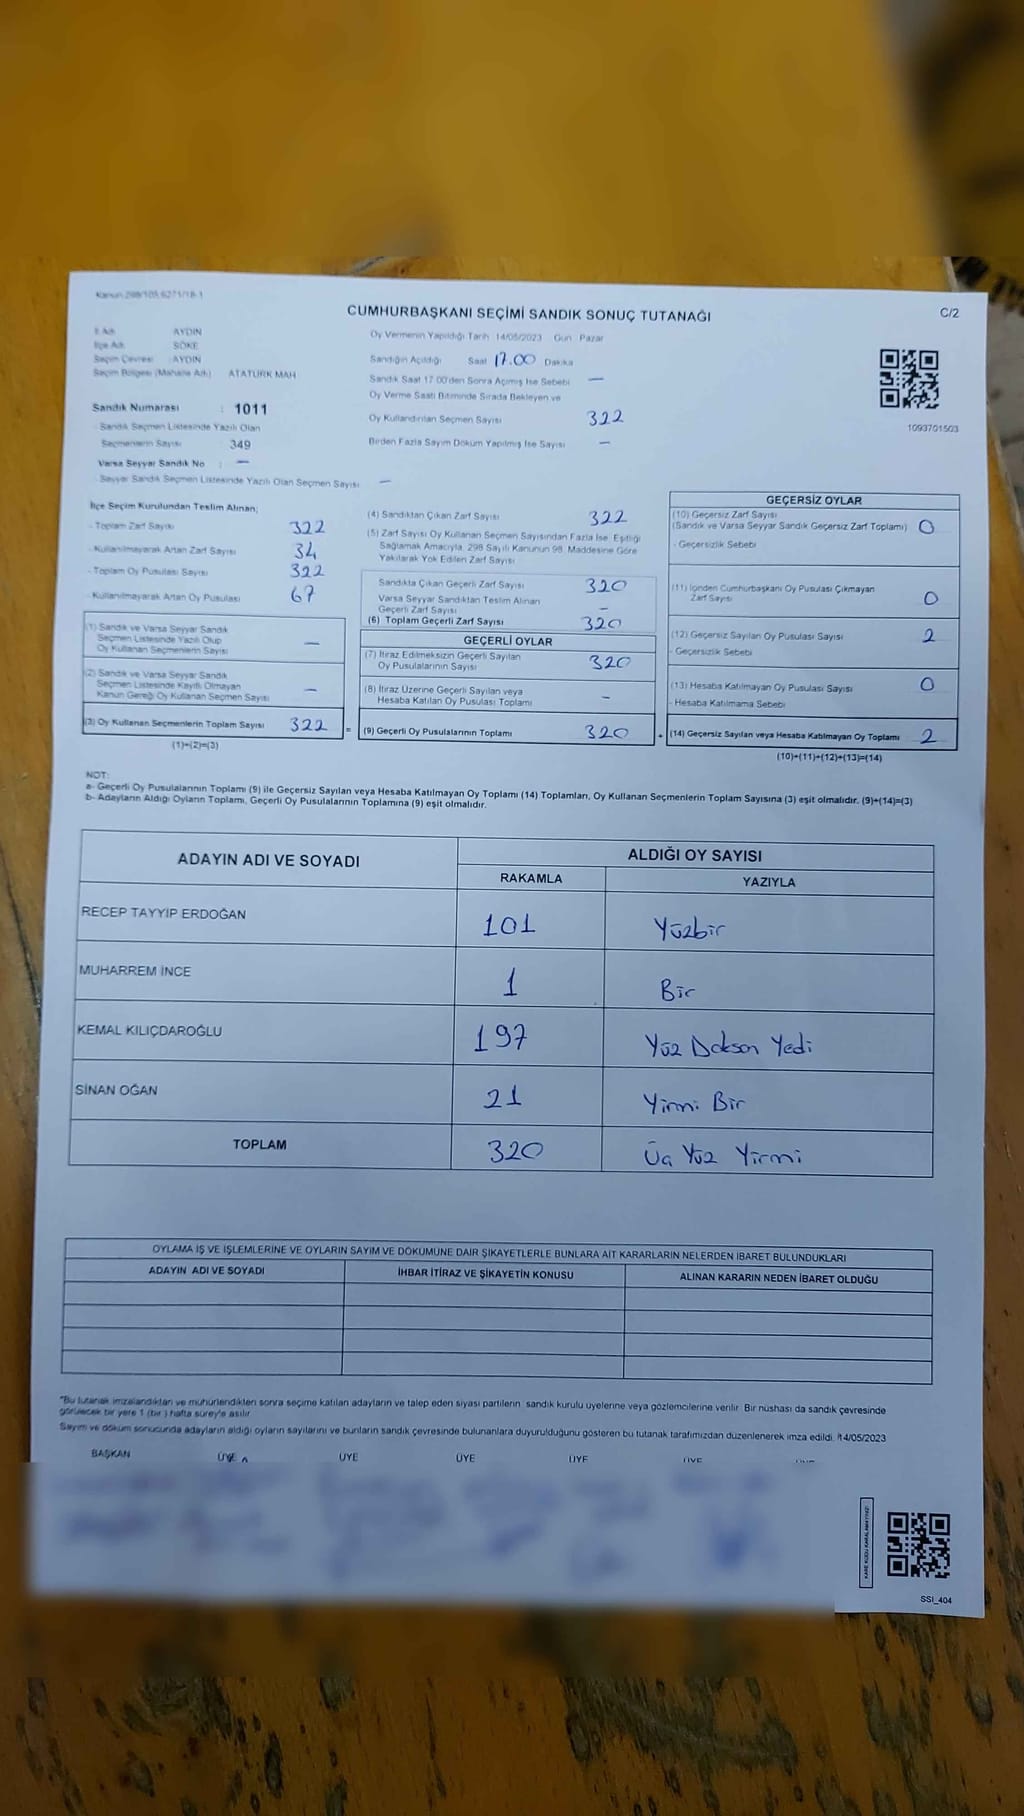 Kanun 298/105,6271/18-1
CUMHURBAŞKANI SEÇİMİ SANDIK SONUÇ TUTANAĞI
C/2
İl Adı AYDIN
İlçe Adı SÖKE
Seçim Çevresi : AYDIN
Seçim Bölgesi (Mahalle Adı) ATATÜRK MAH
Sandık Numarası : 1011
Sandık Seçmen Listesinde Yazılı Olan
Seçmenlerin Sayısı 349
Varsa Seyyar Sandık No : —
Seyyar Sandık Seçmen Listesinde Yazılı Olan Seçmen Sayısı —
Oy Vermenin Yapıldığı Tarih 14/05/2023 Gün Pazar
Sandığın Açıldığı Saat 17.00 Dakika
Sandık Saat 17 00'den Sonra Açımış İse Sebebi —
Oy Verme Saati Bitiminde Sırada Bekleyen ve
Oy Kullandırılan Seçmen Sayısı 322
Birden Fazla Sayım Döküm Yapılmış İse Sayısı —
1093701503
İlçe Seçim Kurulundan Teslim Alınan;
- Toplam Zarf Sayısı 322
- Kullanılmayarak Artan Zarf Sayısı 34
- Toplam Oy Pusulası Sayısı 322
- Kullanılmayarak Artan Oy Pusulası 67
(1) Sandık ve Varsa Seyyar Sandık
Seçmen Listesinde Yazılı Olup
Oy Kullanan Seçmenlerin Sayısı —
(2) Sandık ve Varsa Seyyar Sandık
Seçmen Listesinde Kayıtlı Olmayan
Kanun Gereği Oy Kullanan Seçmen Sayısı —
(3) Oy Kullanan Seçmenlerin Toplam Sayısı 322 =
(1)+(2)=(3)
(4) Sandıktan Çıkan Zarf Sayısı 322
(5) Zarf Sayısı Oy Kullanan Seçmen Sayısından Fazla İse, Eşitliği
Sağlamak Amacıyla, 298 Sayılı Kanunun 98. Maddesine Göre
Yakılarak Yok Edilen Zarf Sayısı
Sandıkta Çıkan Geçerli Zarf Sayısı 320
Varsa Seyyar Sandıktan Teslim Alınan
Geçerli Zarf Sayısı —
(6) Toplam Geçerli Zarf Sayısı 320
GEÇERLİ OYLAR
(7) İtiraz Edilmeksizin Geçerli Sayılan
Oy Pusulalarının Sayısı 320
(8) İtiraz Üzerine Geçerli Sayılan veya
Hesaba Katılan Oy Pusulası Toplamı —
(9) Geçerli Oy Pusulalarının Toplamı 320 +
GEÇERSİZ OYLAR
(10) Geçersiz Zarf Sayısı
(Sandık ve Varsa Seyyar Sandık Geçersiz Zarf Toplamı) 0
- Geçersizlik Sebebi
(11) İçinden Cumhurbaşkanı Oy Pusulası Çıkmayan
Zarf Sayısı 0
(12) Geçersiz Sayılan Oy Pusulası Sayısı 2
- Geçersizlik Sebebi
(13) Hesaba Katılmayan Oy Pusulası Sayısı 0
- Hesaba Katılmama Sebebi
(14) Geçersiz Sayılan veya Hesaba Katılmayan Oy Toplamı 2
(10)+(11)+(12)+(13)=(14)
NOT:
a- Geçerli Oy Pusulalarının Toplamı (9) ile Geçersiz Sayılan veya Hesaba Katılmayan Oy Toplamı (14) Toplamları, Oy Kullanan Seçmenlerin Toplam Sayısına (3) eşit olmalıdır. (9)+(14)=(3)
b- Adayların Aldığı Oyların Toplamı, Geçerli Oy Pusulalarının Toplamına (9) eşit olmalıdır.
ADAYIN ADI VE SOYADI ALDIĞI OY SAYISI
RAKAMLA YAZIYLA
RECEP TAYYİP ERDOĞAN 101 Yüzbir
MUHARREM İNCE 1 Bir
KEMAL KILIÇDAROĞLU 197 Yüz Doksan Yedi
SİNAN OĞAN 21 Yirmi Bir
TOPLAM 320 Üç Yüz Yirmi
OYLAMA İŞ VE İŞLEMLERİNE VE OYLARIN SAYIM VE DÖKÜMÜNE DAİR ŞİKAYETLERLE BUNLARA AİT KARARLARIN NELERDEN İBARET BULUNDUKLARI
ADAYIN ADI VE SOYADI İHBAR İTİRAZ VE ŞİKAYETİN KONUSU ALINAN KARARIN NEDEN İBARET OLDUĞU
"Bu tutanak imzalandıktan ve mühürlendikten sonra seçime katılan adayların ve talep eden siyasi partilerin, sandık kurulu üyelerine veya gözlemcilerine verilir. Bir nüshası da sandık çevresinde
görülecek bir yere 1 (bir ) hafta süreyle asılır.
Sayım ve döküm sonucunda adayların aldığı oyların sayılarını ve bunların sandık çevresinde bulunanlara duyurulduğunu gösteren bu tutanak tarafımızdan düzenlenerek imza edildi. 14/05/2023
BAŞKAN ÜYE ÜYE ÜYE ÜYE ÜYE
SSİ_404